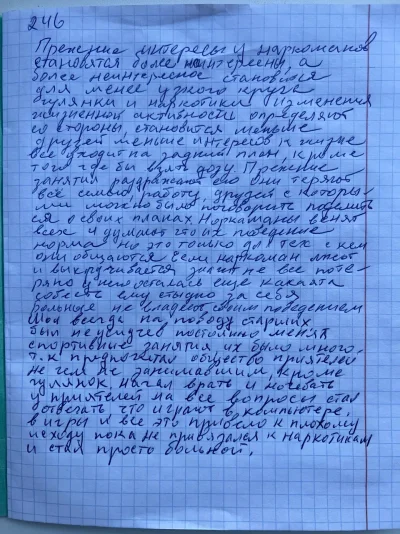 246
Прежние интересы у наркоманов
становятся более неинтересны, а
более неинтересное становится
для менее узкого круга
гулянки и наркотики изменения
жизненной активности определяют
со стороны, становится меньше
друзей меньше интересов к жизне
все уходит на задний план, кроме
того где бы взять дозу. Прежние
занятия раздражают его они теряют
все смысл работа друзей с которы-
ми можно было поговорить поделить
ся о своих планах Наркоманы венят
всех и думают что их поведение
норма но это только для тех с кем
они общаются Если наркоман лжёт
и выкручивается значит не все поте-
ряно у него осталась еще какая та
совесть ему стыдно за себя
больше не владеет своим поведением
Шол всегда на поводу старших
был неусидчев постоянно менял
спортивные занятия их было много.
т.к предпочитал общество приятелей
не чем не занимавшим, кроме
гулянок, начал врать и
у приятелей на все вопросы стал
отвечать что играют в компьютере,
в игры и все это привело к плохому
исходу пока не привязался к наркотикам
и стал просто больной.